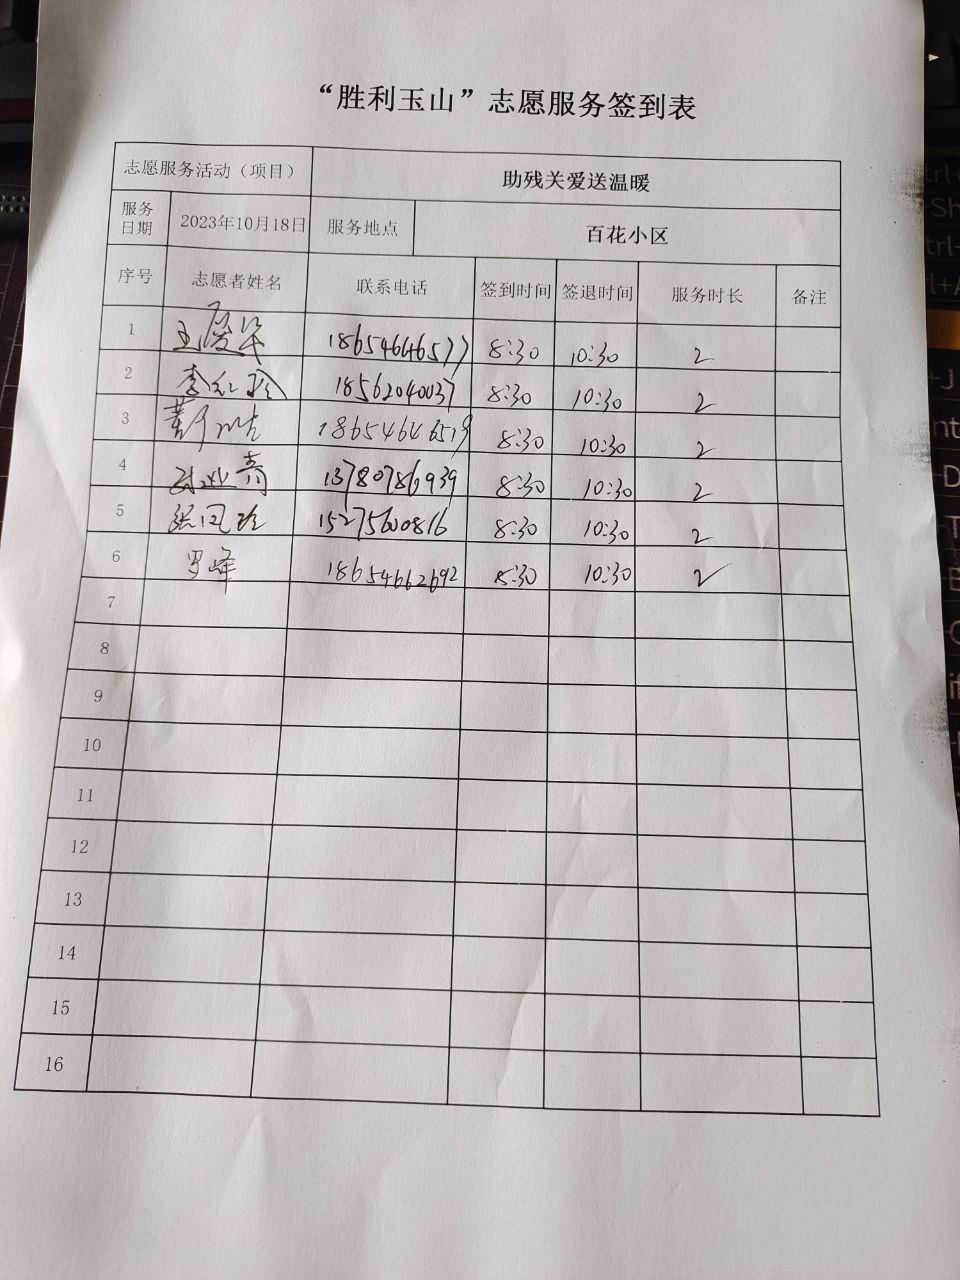 “胜利玉山”志愿服务签到表
志愿服务活动（项目） 助残关爱送温暖
服务日期 2023年10月18日 服务地点 百花小区
序号 志愿者姓名 联系电话 签到时间 签退时间 服务时长 备注
1 18654646577 8:30 10:30 2
2 李红玲 18562040037 8:30 10:30 2
3 18654646519 8:30 10:30 2
4 13780786939 8:30 10:30 2
5 张凤玲 15275600816 8:30 10:30 2
6 罗峰 18654662692 8:30 10:30 2
7
8
9
10
11
12
13
14
15
16